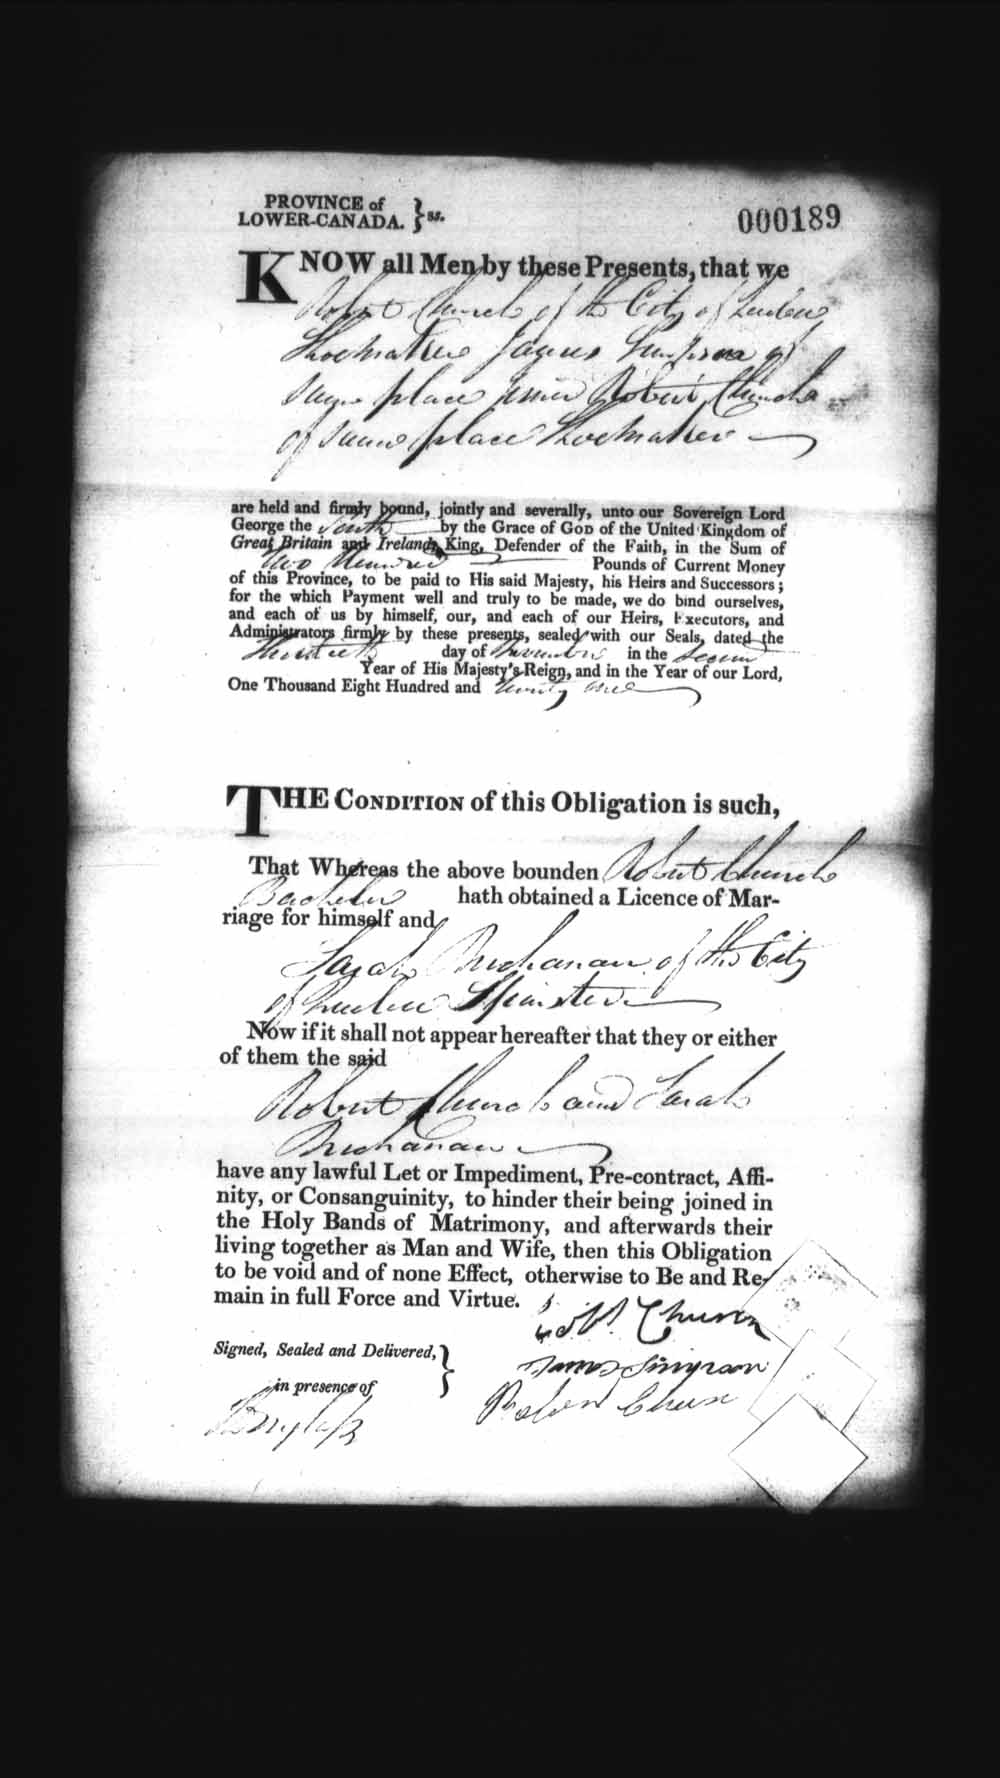 PROVINCE of
LOWER-CANADA. } ss.
000189
KNOW all Men by these Presents, that we
Robert Church of the City of Quebec
Shoemaker James Simpson of
same place Robert Church
of same place Shoemaker
are held and firmly bound, jointly and severally, unto our Sovereign Lord
George the fourth by the Grace of GOD of the United Kingdom of
Great Britain and Ireland, King, Defender of the Faith, in the Sum of
Two Hundred Pounds of Current Money
of this Province, to be paid to His said Majesty, his Heirs and Successors;
for the which Payment well and truly to be made, we do bind ourselves,
and each of us by himself, our, and each of our Heirs, Executors, and
Administrators firmly by these presents, sealed with our Seals, dated the
Thirtieth day of November in the second
Year of His Majesty's Reign, and in the Year of our Lord,
One Thousand Eight Hundred and twenty one
THE CONDITION of this Obligation is such,
That Whereas the above bounden Robert Church
Bachelor hath obtained a Licence of Mar-
riage for himself and
Sarah Buchanan of the City
of Quebec Spinster
Now if it shall not appear hereafter that they or either
of them the said
Robert Church and Sarah
Buchanan
have any lawful Let or Impediment, Pre-contract, Affi-
nity, or Consanguinity, to hinder their being joined in
the Holy Bands of Matrimony, and afterwards their
living together as Man and Wife, then this Obligation
to be void and of none Effect, otherwise to Be and Re-
main in full Force and Virtue.
Church
Signed, Sealed and Delivered, }
James Simpson
in presence of
Robert Church